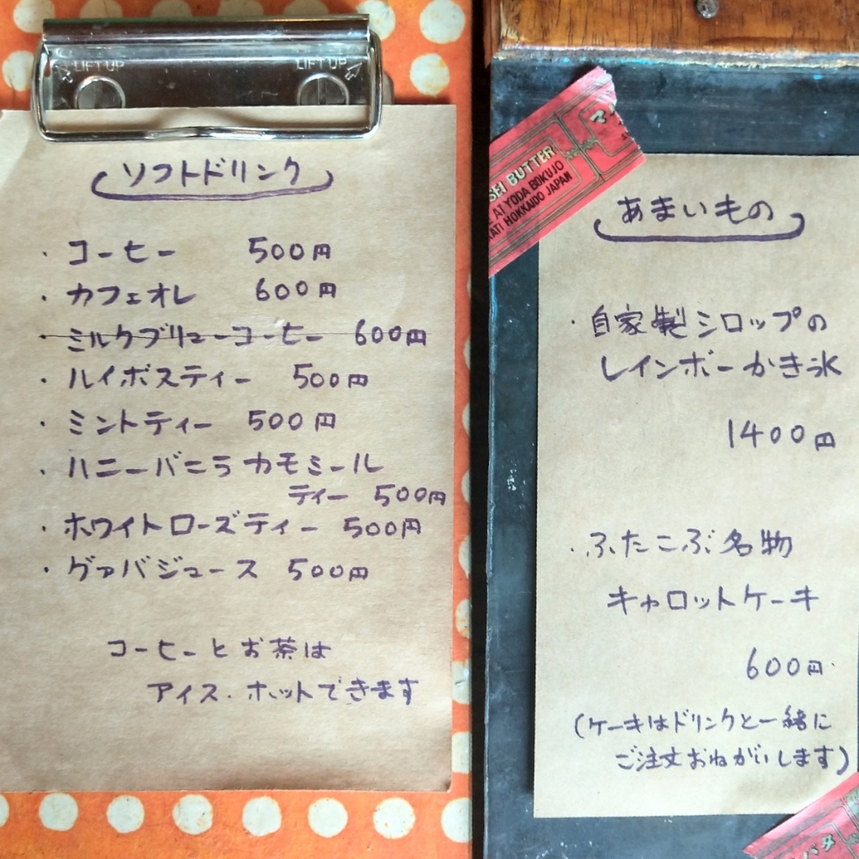 LIFT UP
LIFT UP
ソフトドリンク
・コーヒー 500円
・カフェオレ 600円
・ミルクブリューコーヒー 600円
・ルイボスティー 500円
・ミントティー 500円
・ハニーバニラカモミール
ティー 500円
・ホワイトローズティー 500円
・グァバジュース 500円
コーヒーとお茶は
アイス・ホットできます
SEI BUTTER
AT YODA BOKUJO
HOKKAIDO JAPAN
あまいもの
・自家製シロップの
レインボーかき氷
1400円
・ふたこぶ名物
キャロットケーキ
600円
(ケーキはドリンクと一緒に
ご注文おねがいします)